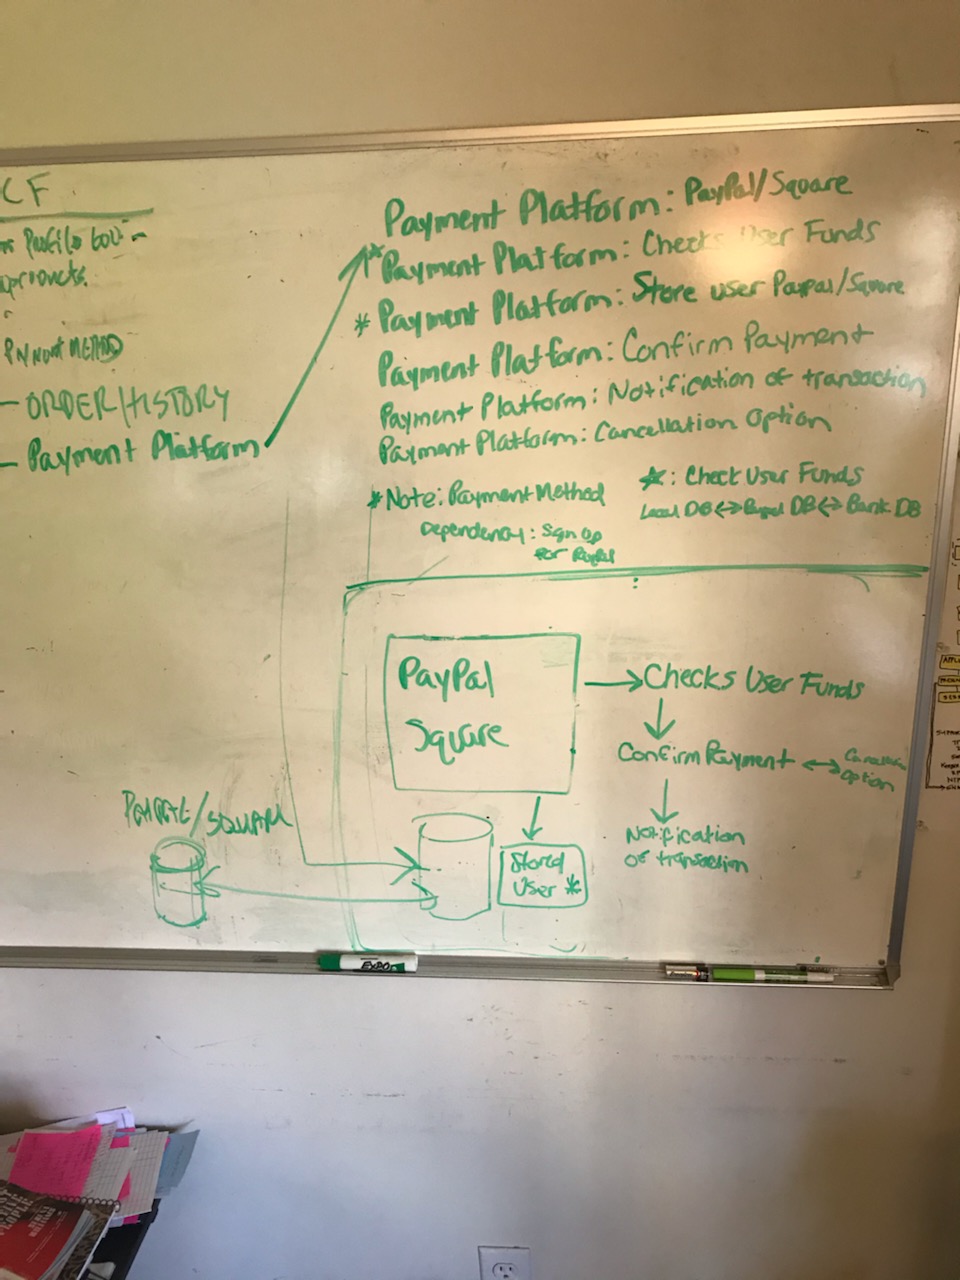 CF
Profile
- ORDER/HISTORY
- Payment Platform
Payment Platform: PayPal/Square
*Payment Platform: Checks User Funds
* Payment Platform: Store user Paypal/Square
Payment Platform: Confirm Payment
Payment Platform: Notification of transaction
Payment Platform: Cancellation Option
*Note: Payment Method
Dependency: Sign Up
For PayPal
☆: Check User Funds
Local DB <-> Paypal DB <-> Bank DB
PayPal
Square
→ Checks User Funds
Confirm Payment ↔ Cancellation
Option
Notification
of transaction
Stored
User *
/SQUARE
EXPO